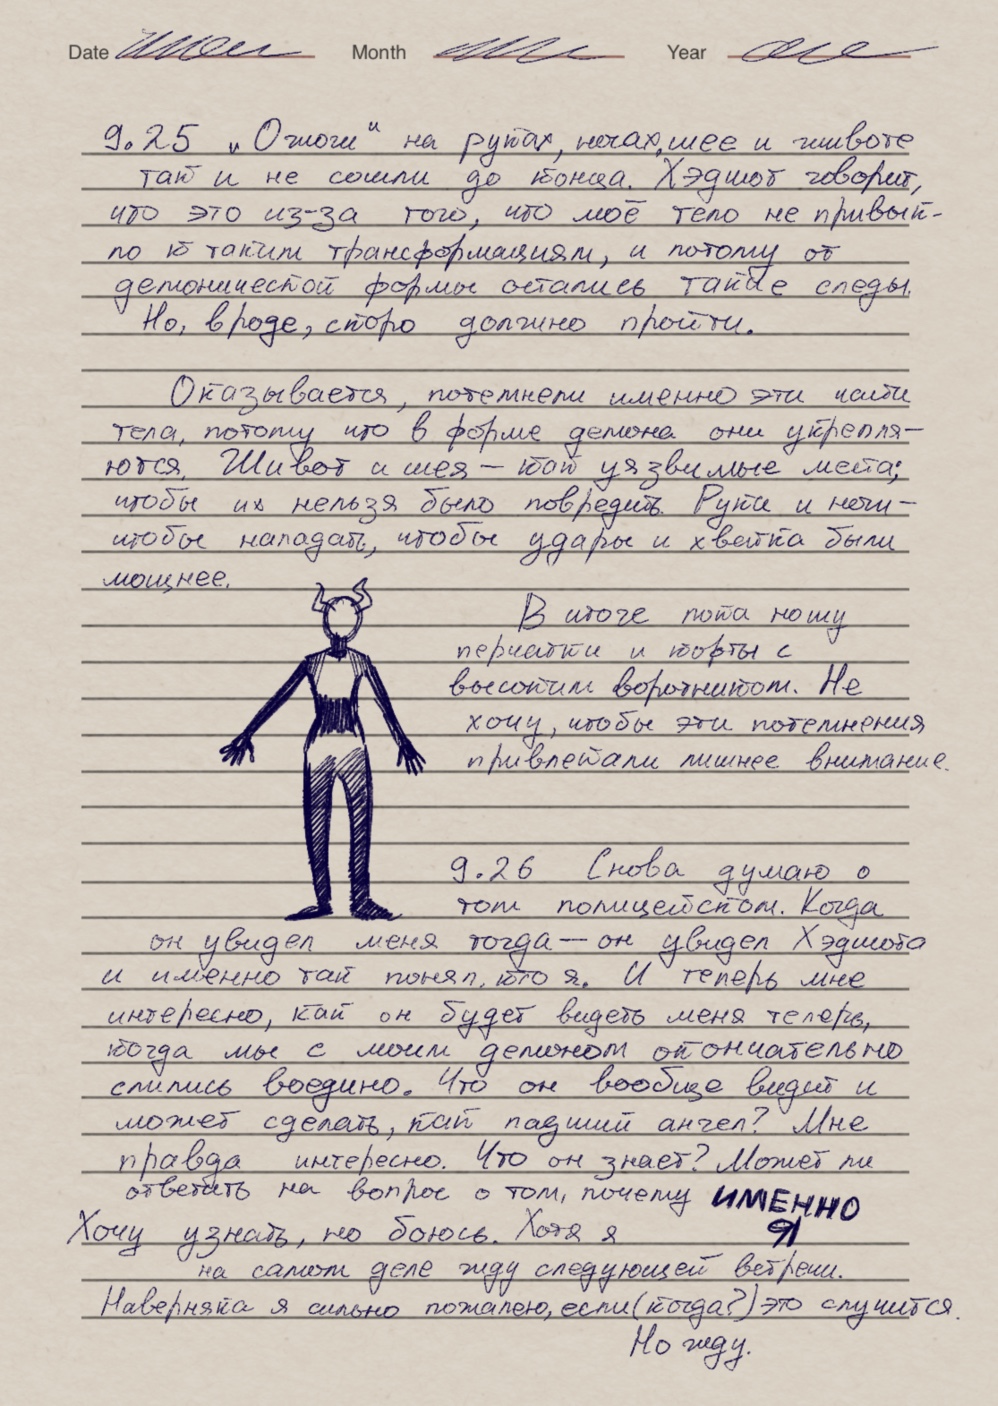 Date Month Year
9.25 „Ожоги“ на руках, ногах, шее и животе
так и не сошли до конца. Хэдшот говорит,
что это из-за того, что моё тело не привык-
ло к таким трансформациям, и потому от
демонической формы остались такие следы.
Но, вроде, скоро должно пройти.
Оказывается, потемнели именно эти части
тела, потому что в форме демона они укрепля-
ются. Живот и шея — как уязвимые места;
чтобы их нельзя было повредить. Руки и ноги —
чтобы нападать, чтобы удары и хватка были
мощнее.
В итоге пока ношу
перчатки и кофты с
высоким воротником. Не
хочу, чтобы эти потемнения
привлекали лишнее внимание.
9.26 Снова думаю о
том полицейском. Когда
он увидел меня тогда — он увидел Хэдшота
и именно так понял, кто я. И теперь мне
интересно, как он будет видеть меня теперь,
когда мы с моим демоном окончательно
слились воедино. Что он вообще видит и
может сделать, как падший ангел? Мне
правда интересно. Что он знает? Может ли
ответить на вопрос о том, почему ИМЕННО
Я
Хочу узнать, но боюсь. Хотя я
на самом деле жду следующей встречи.
Наверняка я сильно пожалею, если (когда?) это случится.
Но жду.